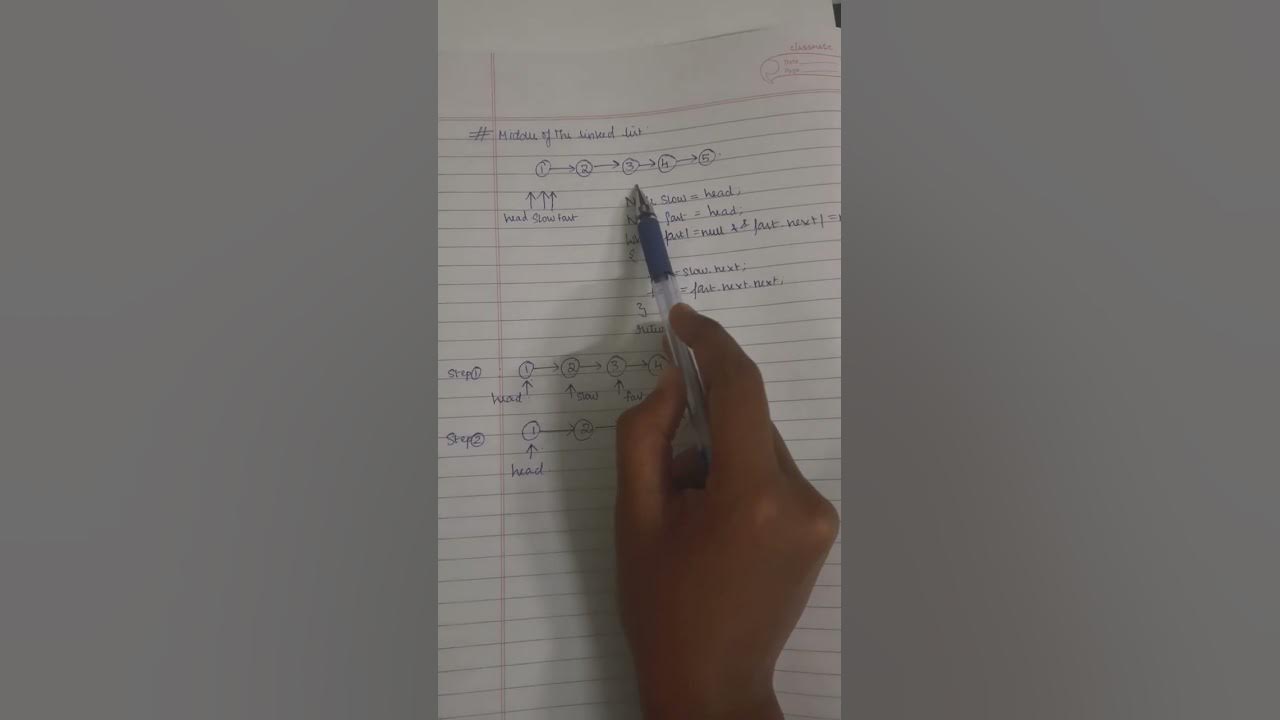 classmate
Date
Page
# Middle of the linked list
1 → 2 → 3 → 4 → 5
head slow fast
slow = head;
fast = head;
fast != null && fast.next! =
{
= slow.next;
= fast.next.next;
}
Step 1 1 → 2 → 3 → 4
head slow
Step 2 1 → 2
head